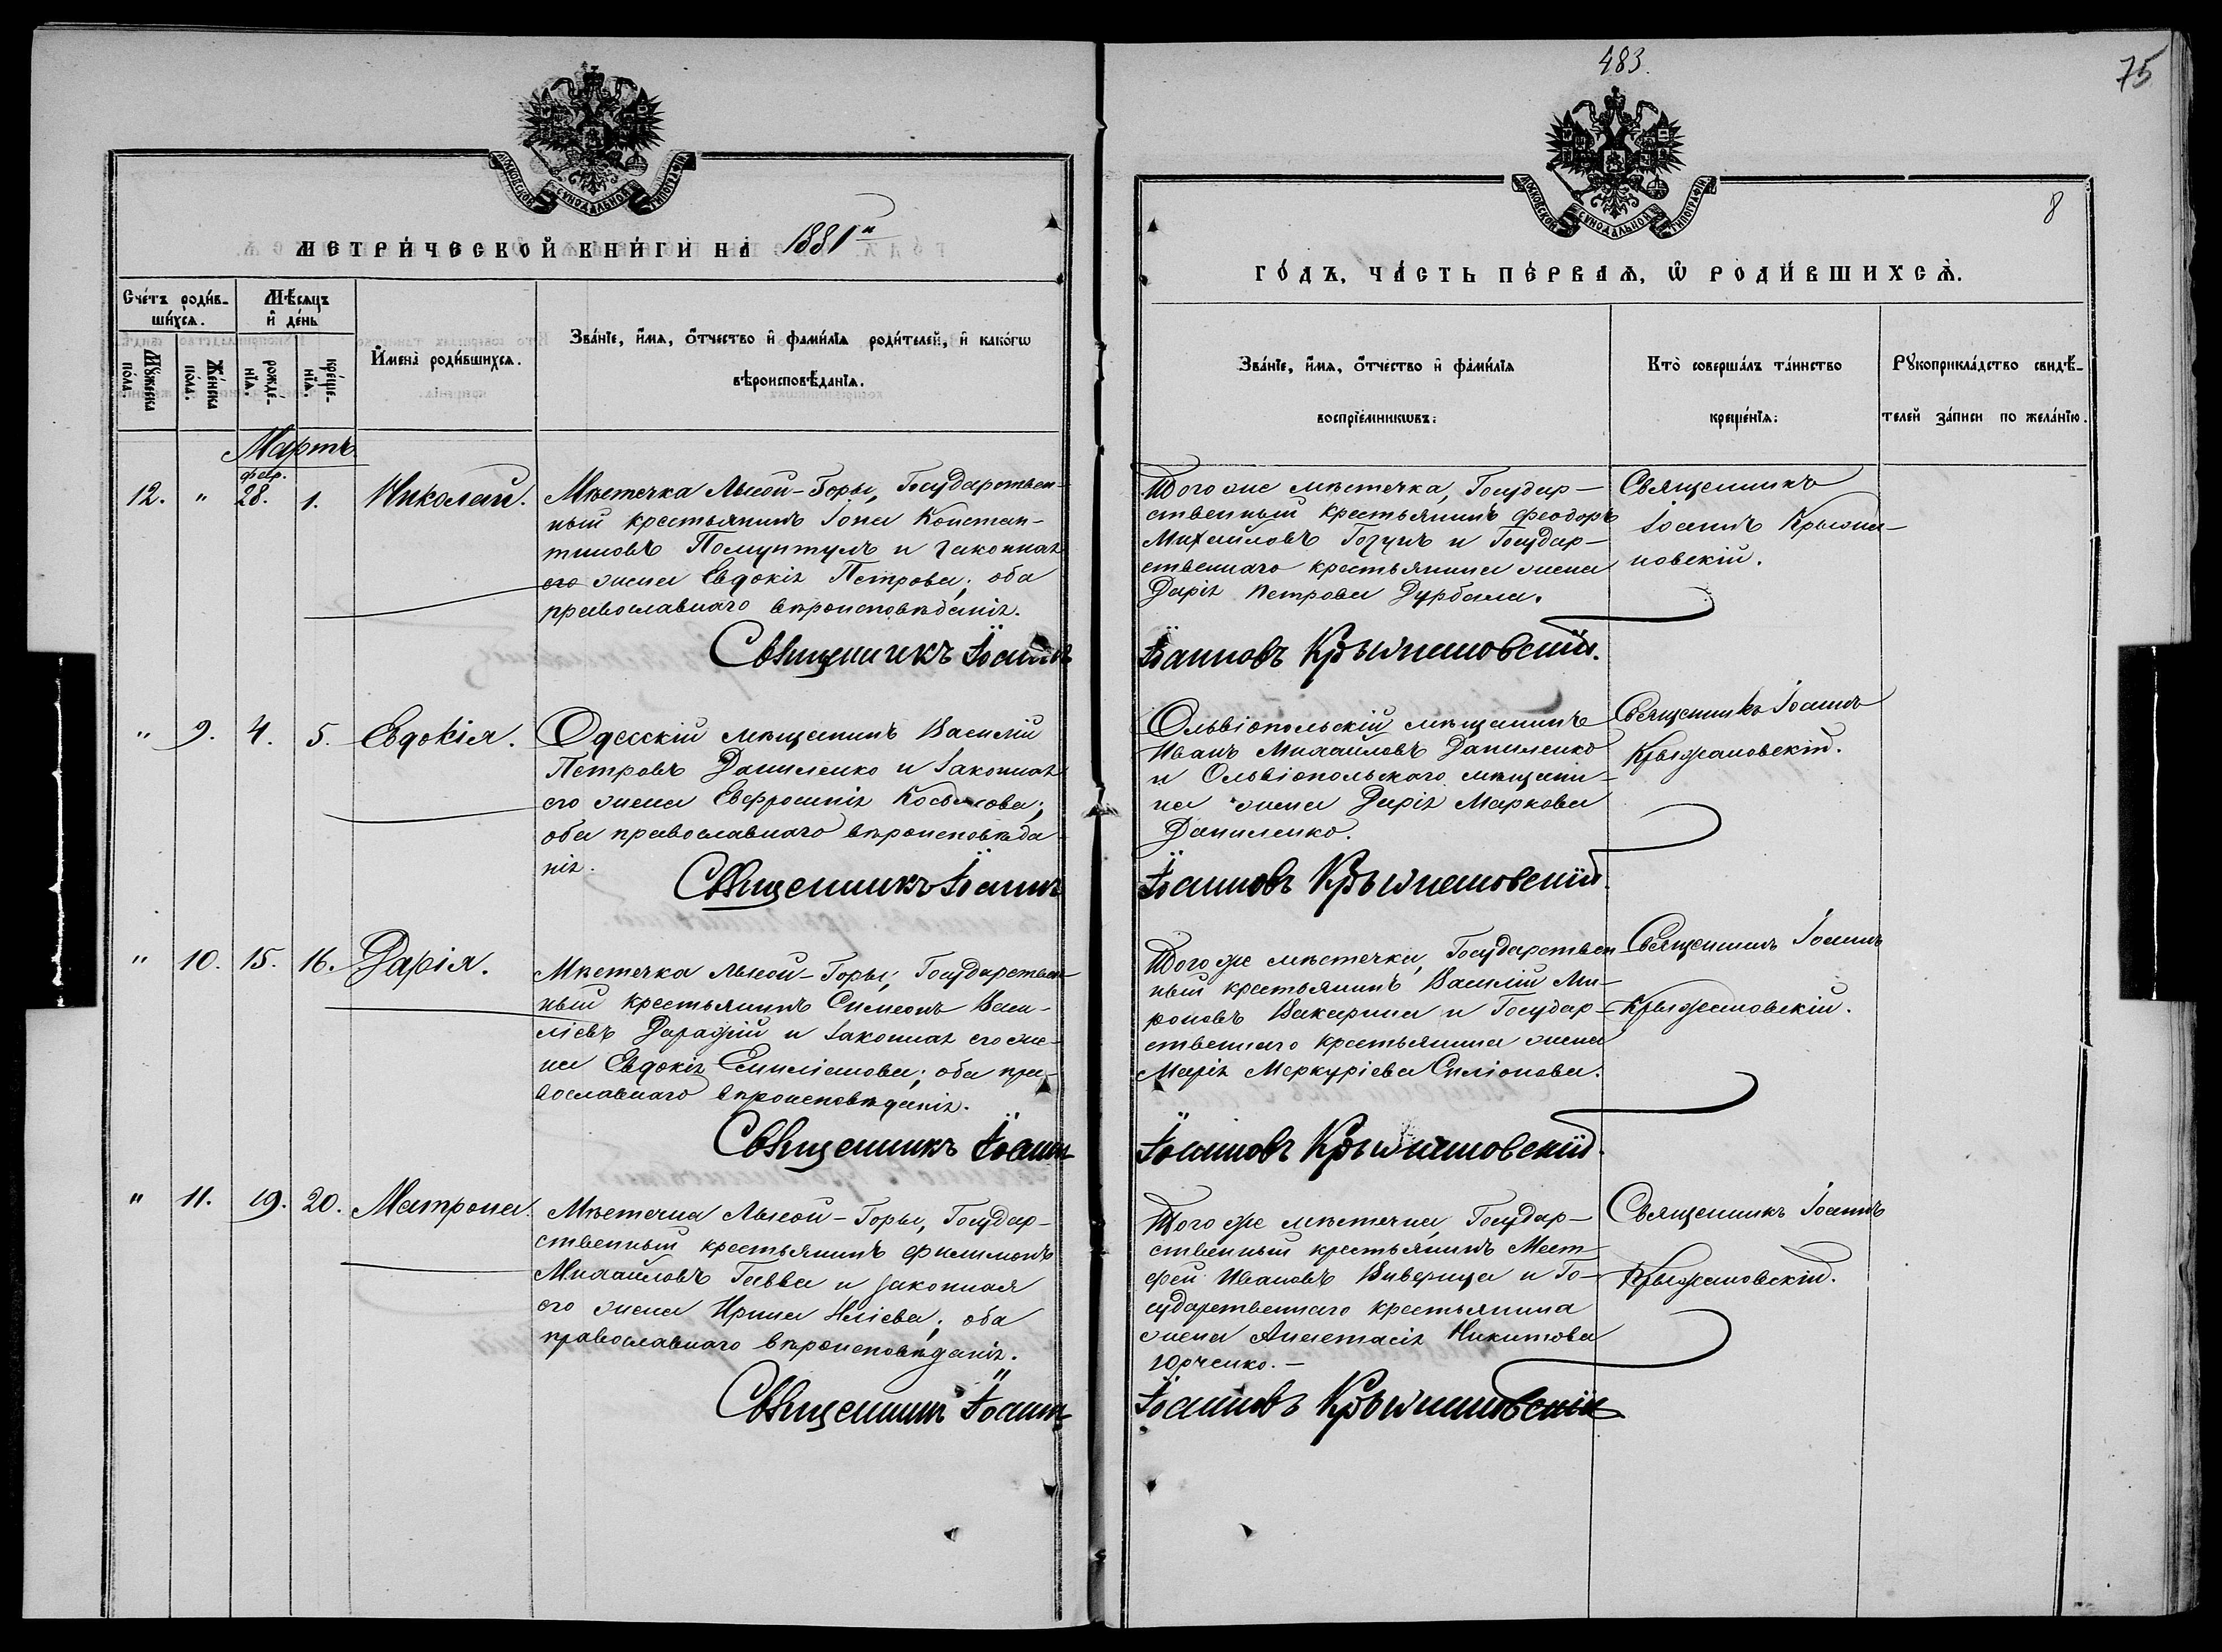 483.
75
8
МОСКОВСКОЙ СѴНОДАЛЬНОЙ ТИПОГРАФІИ
МОСКОВСКОЙ СѴНОДАЛЬНОЙ ТИПОГРАФІИ
МЕТРИ́ЧЕСКОЙ КНИ́ГИ НА 1881й
ГО́ДЪ, ЧА́СТЬ ПЕ́РВАѦ, Ѡ҆ РОДИ́ВШИХСѦ.
Сче́тъ роди́в-
ши́хсѧ.
Мѣ́сѧцъ
и҆ де́нь
Мꙋ́жеска по́ла.
Же́нска по́ла.
рожде́-нїѧ.
креще́-нїѧ.
И҆мена̀ роди́вшихсѧ.
Зва́нїе, и҆́мѧ, ѻ҆́тчество и҆ фами́лїѧ роди́телей, и҆ како́гѡ
вѣроисповѣ́данїѧ.
Зва́нїе, и҆́мѧ, ѻ҆́тчество и҆ фами́лїѧ
воспрїе́мникѡвъ:
Кто̀ соверша́лъ та́инство
креще́нїѧ:
Рꙋкоприкла́дство свидѣ́-
телей за́писи по жела́нїю.
Мартъ.
февр.
12. " 28. 1. Николай.
Мѣстечка Лысой-Горы, Государствен-
ный крестьянинъ Іона Констан-
тиновъ Помунтулъ и законная
его жена Евдокія Петрова; оба
православнаго вѣроисповѣданія.
Того же мѣстечка, Государ-
ственный крестьянинъ Феодоръ
Михаиловъ Гозунъ и Государ-
ственнаго крестьянина жена
Дарія Петрова Дурбала.
Священникъ
Іоаннъ Крыжа-
новскій.
Священникъ Іоаннъ
Іоанновъ Крыжановскій.
" 9. 4. 5. Евдокія.
Одесскій мѣщанинъ Василій
Петровъ Даниленко и законная
его жена Евфросинія Косьмова;
оба православнаго вѣроисповѣда-
нія.
Ольвіопольскій мѣщанинъ
Иванъ Михаиловъ Даниленко
и Ольвіопольскаго мѣщани-
на жена Дарія Маркова
Даниленко.
Священникъ Іоаннъ
Крыжановскій.
Священникъ Іоаннъ
Іоанновъ Крыжановскій.
" 10. 15. 16. Дарія.
Мѣстечка Лысой-Горы, Государствен-
ный крестьянинъ Симеонъ Васи-
ліевъ и законная его же-
на Евдокія Емиліанова; оба пра-
вославнаго вѣроисповѣданія.
Того же мѣстечка, Государствен-
ный крестьянинъ Василій Ми-
роновъ Вакарина и Государ-
ственнаго крестьянина жена
Марія Меркуріева Силіонова.
Священникъ Іоаннъ
Крыжановскій.
Священникъ Іоаннъ
Іоанновъ Крыжановскій.
" 11. 19. 20. Матрона.
Мѣстечка Лысой-Горы, Государ-
ственный крестьянинъ Филимонъ
Михаиловъ Гавва и законная
его жена Ирина Иліева; оба
православнаго вѣроисповѣданія.
Того же мѣстечка, Государ-
ственный крестьянинъ Мат-
фей Ивановъ Виверица и Го-
сударственнаго крестьянина
жена Анастасія Никитова
Юрченко.-
Священникъ Іоаннъ
Крыжановскій.
Священникъ Іоаннъ
Іоанновъ Крыжановскій